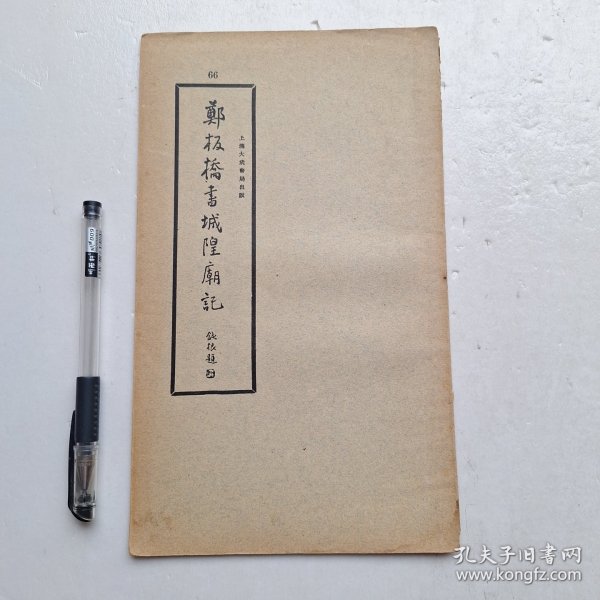 66
鄭板橋書城隍廟記
上海大衆書局出版
孔夫子旧书网
www.kongfz.com